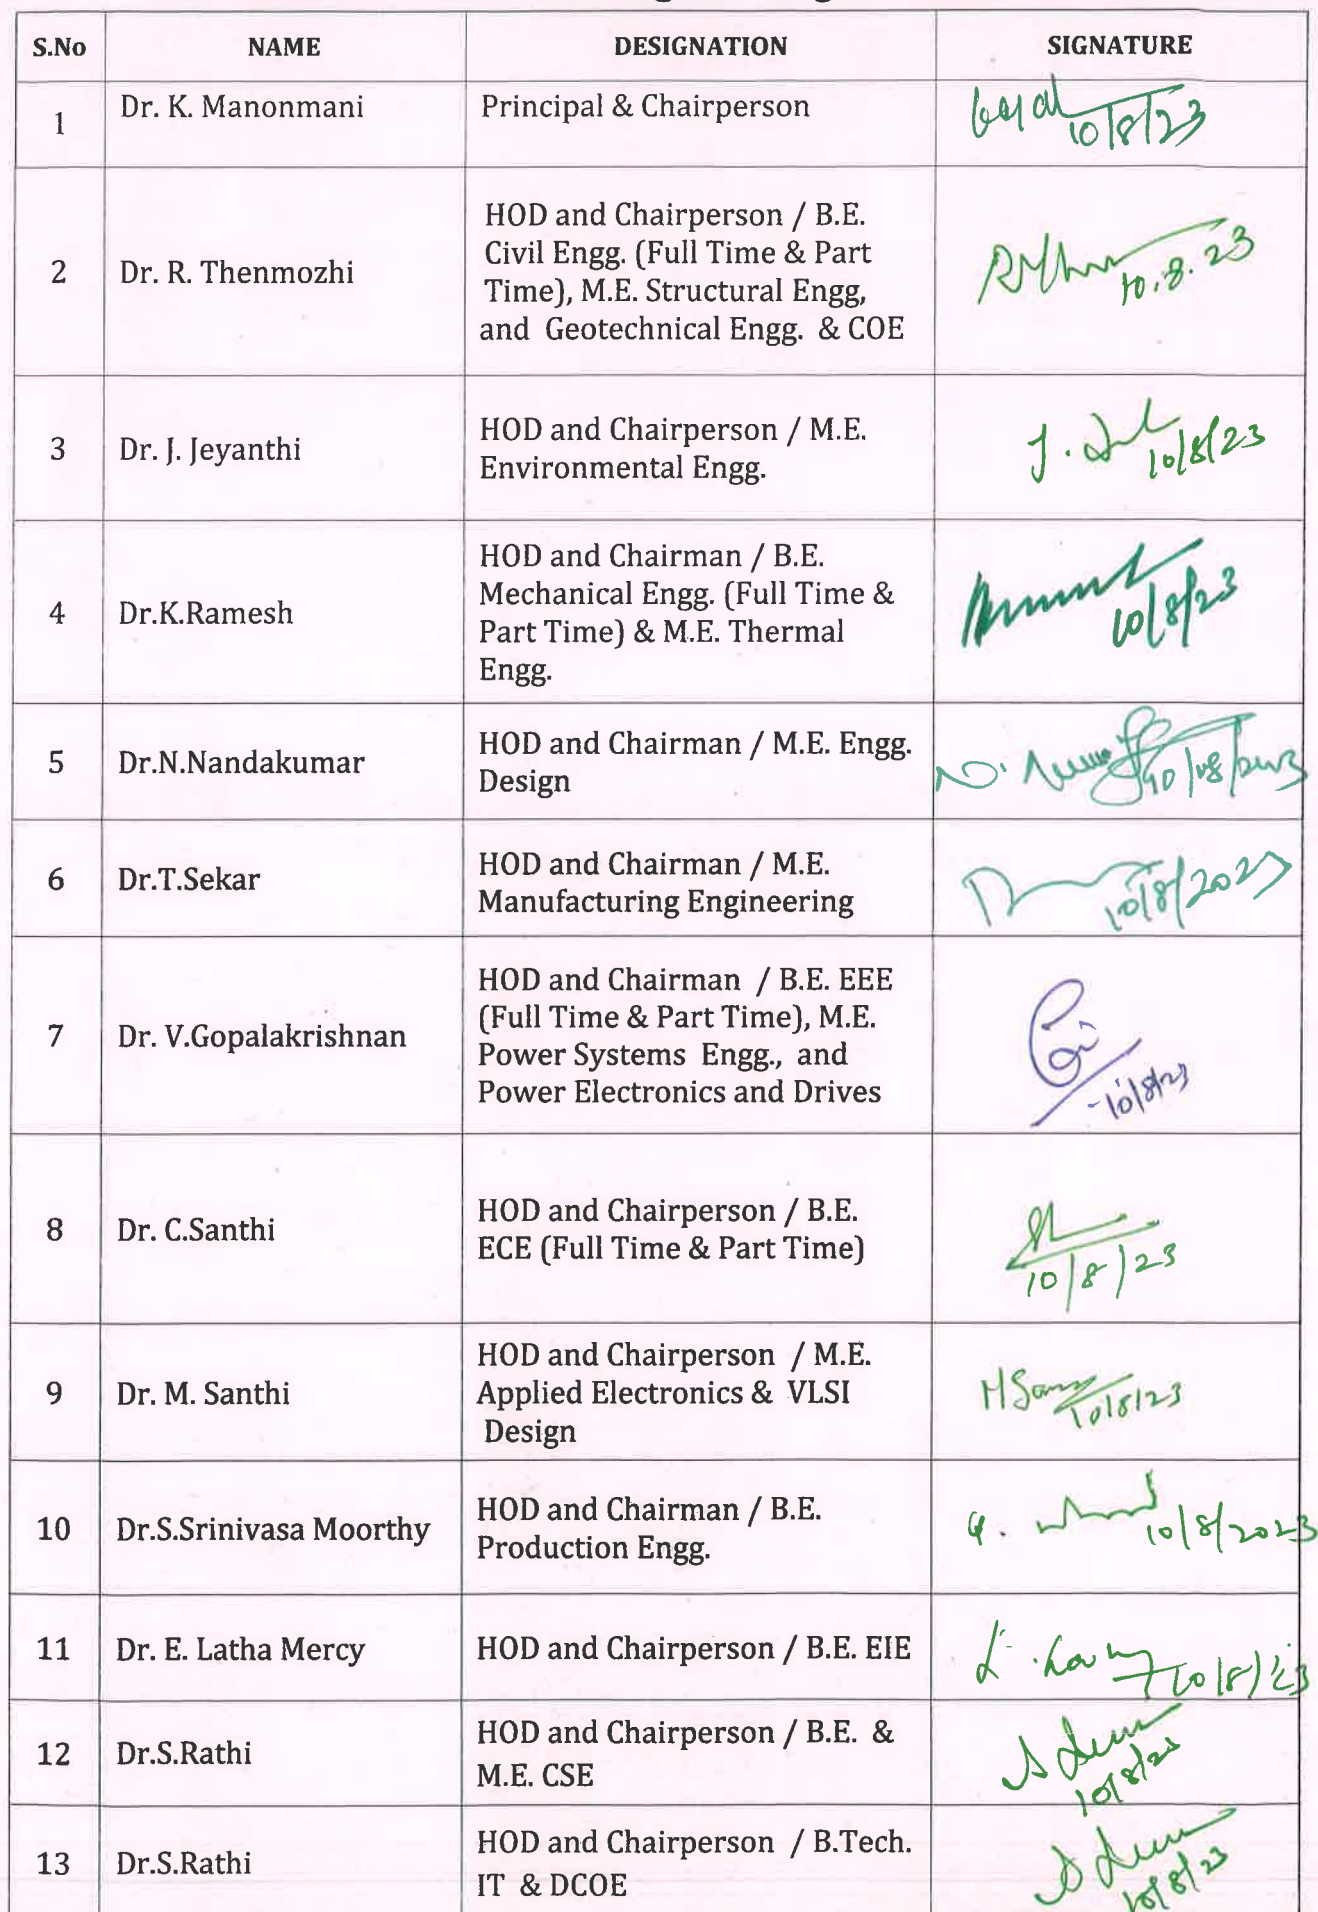 S.No NAME DESIGNATION SIGNATURE
1 Dr. K. Manonmani Principal & Chairperson 10/8/23
2 Dr. R. Thenmozhi HOD and Chairperson / B.E.
Civil Engg. (Full Time & Part
Time), M.E. Structural Engg,
and Geotechnical Engg. & COE 10.8.23
3 Dr. J. Jeyanthi HOD and Chairperson / M.E.
Environmental Engg. J. 10/8/23
4 Dr.K.Ramesh HOD and Chairman / B.E.
Mechanical Engg. (Full Time &
Part Time) & M.E. Thermal
Engg. 10/8/23
5 Dr.N.Nandakumar HOD and Chairman / M.E. Engg.
Design N. 10/08/2023
6 Dr.T.Sekar HOD and Chairman / M.E.
Manufacturing Engineering 10/8/2023
7 Dr. V.Gopalakrishnan HOD and Chairman / B.E. EEE
(Full Time & Part Time), M.E.
Power Systems Engg., and
Power Electronics and Drives 10/8/23
8 Dr. C.Santhi HOD and Chairperson / B.E.
ECE (Full Time & Part Time) 10/8/23
9 Dr. M. Santhi HOD and Chairperson / M.E.
Applied Electronics & VLSI
Design 10/8/23
10 Dr.S.Srinivasa Moorthy HOD and Chairman / B.E.
Production Engg. 10/8/2023
11 Dr. E. Latha Mercy HOD and Chairperson / B.E. EIE 10/8/23
12 Dr.S.Rathi HOD and Chairperson / B.E. &
M.E. CSE 10/8/23
13 Dr.S.Rathi HOD and Chairperson / B.Tech.
IT & DCOE 10/8/23